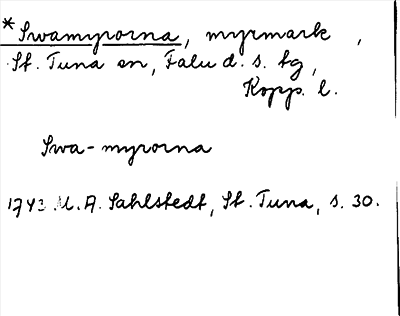 *Swamyrorna, myrmark,
St. Tuna sn, Falu d. s. tg,
Kopp. l.
Swa-myrorna
1743 U. A. Sahlstedt, St. Tuna, s. 30.